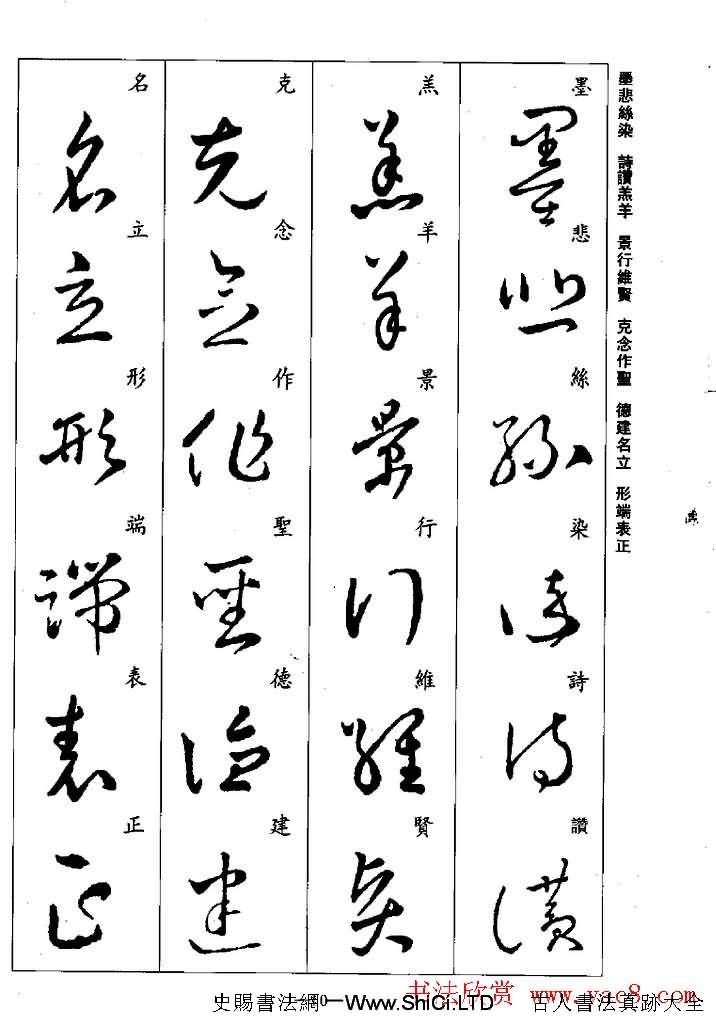 墨悲絲染 詩讚羔羊 景行維賢 克念作聖 德建名立 形端表正
墨悲絲染詩讚
羔羊景行維賢
克念作聖德建
名立形端表正
书法欣赏 www.yac8.com
史賜書法網 www.ShiCi.LTD 古人書法真跡大全